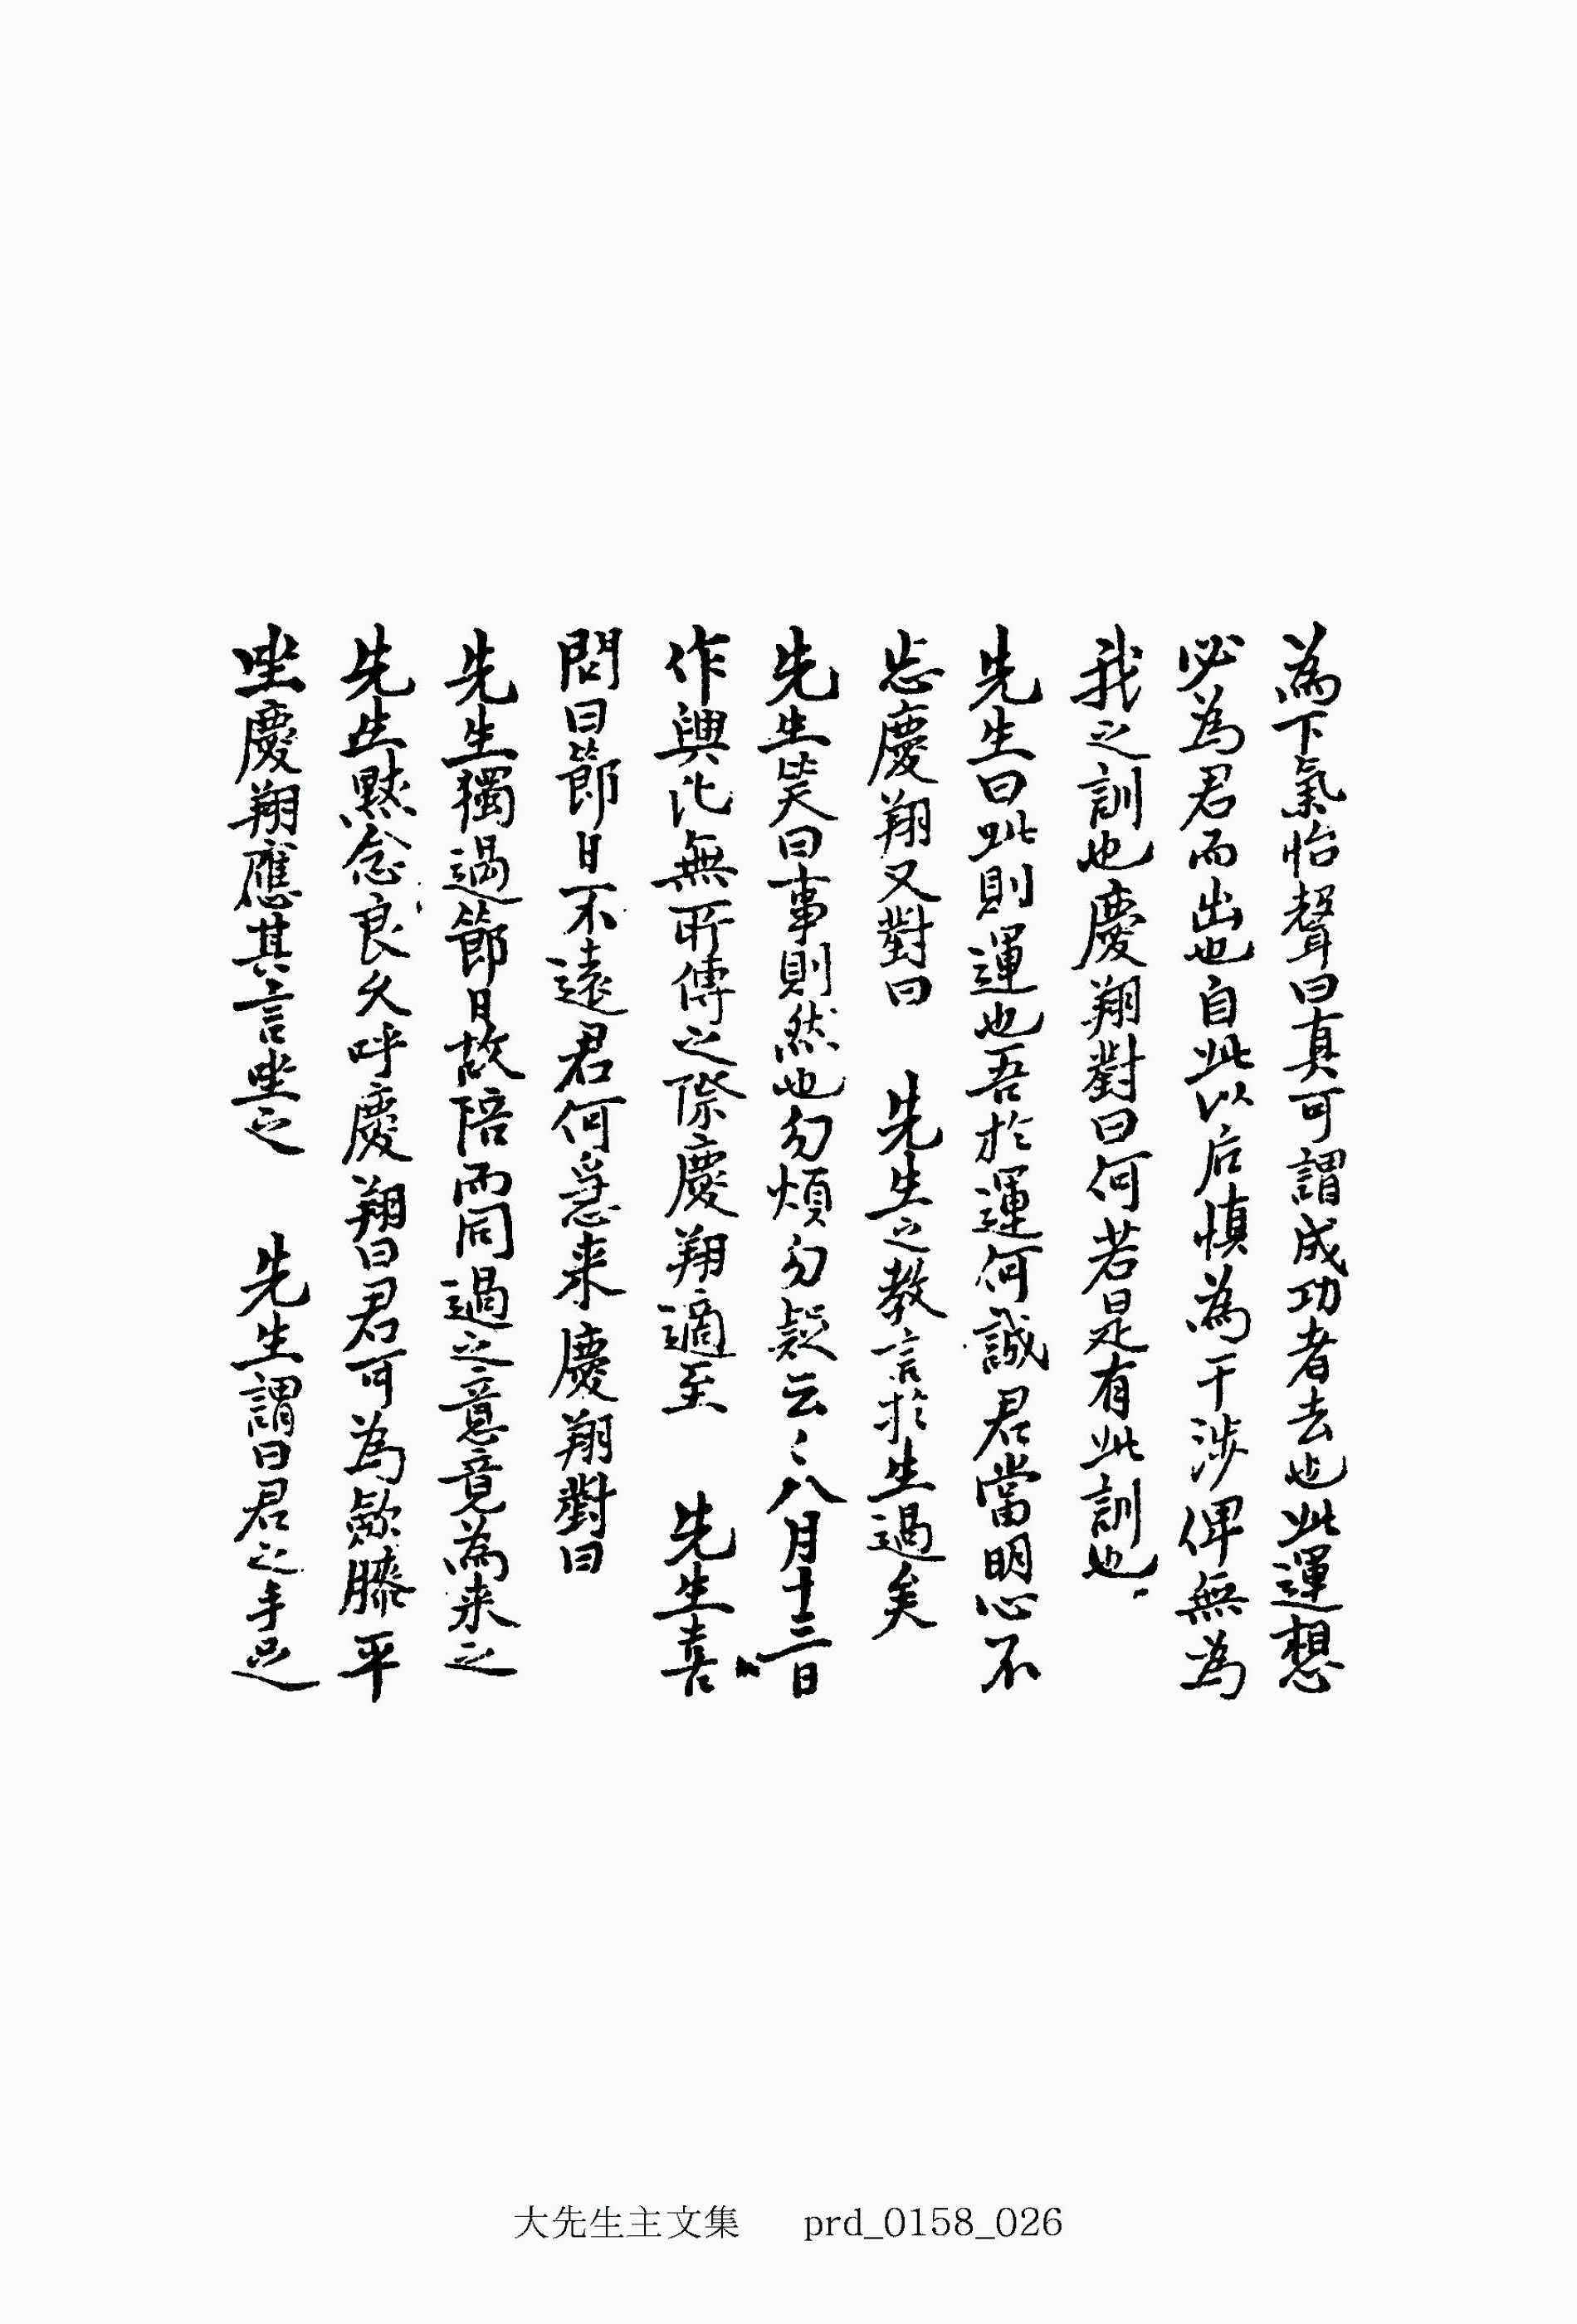 為下氣怡聲曰真可謂成功者去也此運想
必為君而出也自此以后慎為干涉俾無為
我之訓也慶翔對曰何若是有此訓也
先生曰此則運也吾於運何誠君當明心不
忘慶翔又對曰 先生之教言於生過矣
先生笑曰事則然也勿煩勿疑云〻八月十三日
作興比無所傳之際慶翔適至 先生喜
問曰節日不遠君何急来慶翔對曰
先生獨過節日故陪而同過之意竟為来之
先生黙念良久呼慶翔曰君可為歛膝平
坐慶翔應其言坐之 先生謂曰君之手足
大先生主文集 prd_0158_026